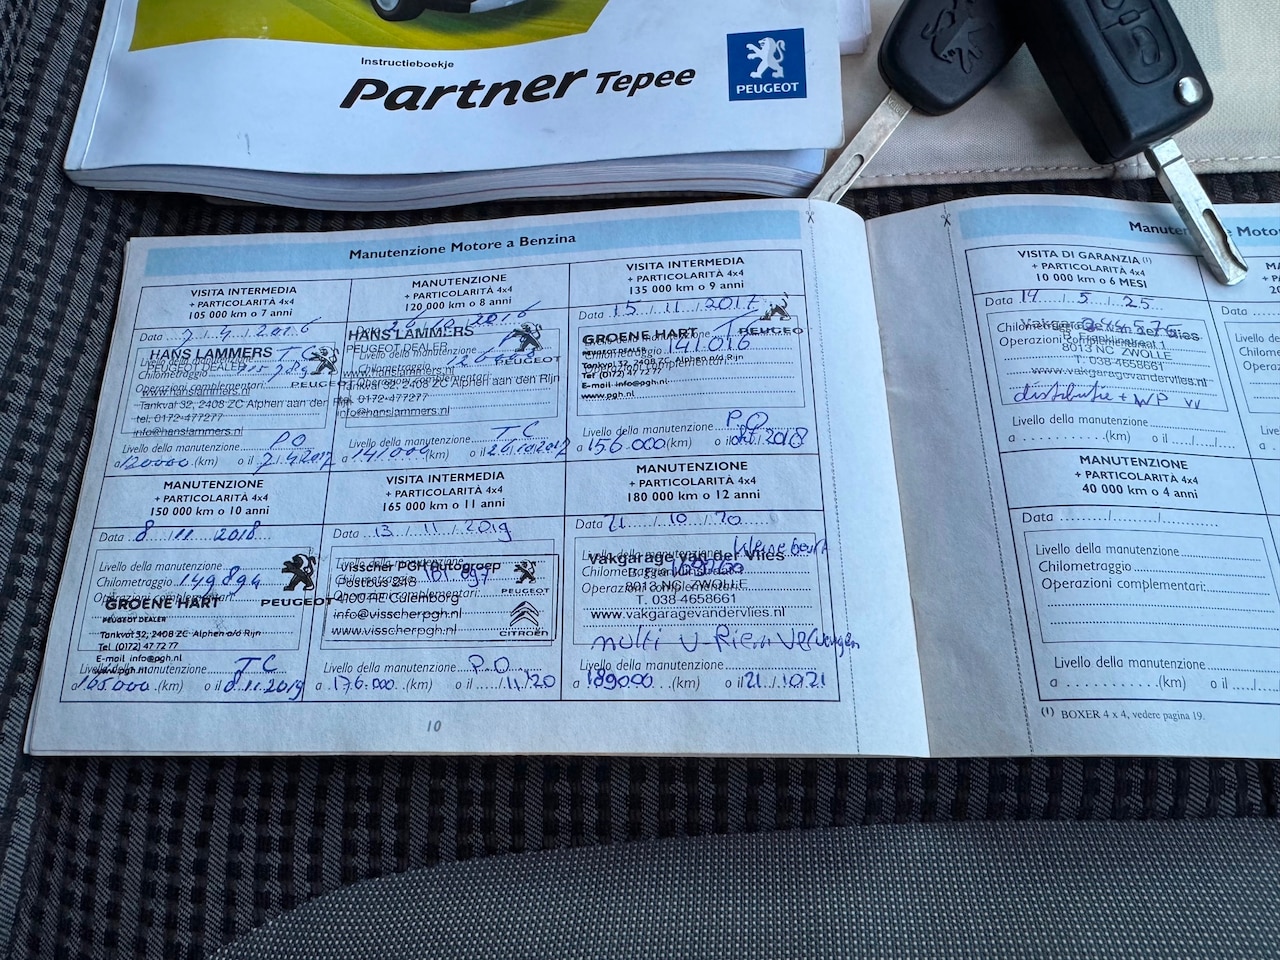 Instructieboekje
Partner Tepee
PEUGEOT
Manutenzione Motore a Benzina
VISITA INTERMEDIA
+ PARTICOLARITÀ 4x4
105 000 km o 7 anni
Data 7/4/2016
HANS LAMMERS
PEUGEOT DEALER
Livello della manutenzione TC
Chilometraggio
PEUGEOT
Operazioni complementari:
www.hanslammers.nl
Tankval 32, 2408 ZC Alphen aan den Rijn
tel. 0172-477277
info@hanslammers.nl
Livello della manutenzione PO
a 120000 (km) o il 7/4/2017
MANUTENZIONE
+ PARTICOLARITÀ 4x4
120 000 km o 8 anni
Data 2016
HANS LAMMERS
PEUGEOT DEALER
Livello della manutenzione
Chilometraggio
PEUGEOT
Operazioni complementari:
www.hanslammers.nl
Tankval 32, 2408 ZC Alphen aan den Rijn
tel. 0172-477277
info@hanslammers.nl
Livello della manutenzione TC
a 141000 (km) o il 26/10/2017
VISITA INTERMEDIA
+ PARTICOLARITÀ 4x4
135 000 km o 9 anni
Data 15/11/2017
GROENE HART
PEUGEOT
PEUGEOT DEALER
Chilometraggio 141016
Tankval 32, 2408 ZC Alphen a/d Rijn
Tel (0172) 47 72 77
E-mail info@pgh.nl
www.pgh.nl
Livello della manutenzione PO
a 156.000 (km) o il 2018
MANUTENZIONE
+ PARTICOLARITÀ 4x4
150 000 km o 10 anni
Data 8/11/2018
Livello della manutenzione
Chilometraggio 149894
Operazioni complementari:
GROENE HART
PEUGEOT
PEUGEOT DEALER
Tankval 32, 2408 ZC Alphen a/d Rijn
Tel (0172) 47 72 77
E-mail info@pgh.nl
www.pgh.nl
Livello della manutenzione TC
a 165000 (km) o il 8/11/2019
VISITA INTERMEDIA
+ PARTICOLARITÀ 4x4
165 000 km o 11 anni
Data 13/11/2019
Livello della manutenzione
Visscher PGH Autogroep
Chilometraggio
Postbus 213
PEUGEOT
4100 AE Culemborg
info@visscherpgh.nl
www.visscherpgh.nl
CITROËN
Livello della manutenzione PO
a 176.000 (km) o il /11/20
MANUTENZIONE
+ PARTICOLARITÀ 4x4
180 000 km o 12 anni
Data 21/10/20
Livello della manutenzione Kleine beurt
Vakgarage van der Vlies
Chilometraggio
8013 NC ZWOLLE
T. 038-4658661
www.vakgaragevandervlies.nl
multi v-Riem Vervangen
Livello della manutenzione
a 189000 (km) o il 21/10/21
10
VISITA DI GARANZIA (1)
+ PARTICOLARITÀ 4x4
10 000 km o 6 MESI
Data 14/5/25
Chilometraggio
Vakgarage van der Vlies
Operazioni
8013 NC ZWOLLE
T. 038-4658661
www.vakgaragevandervlies.nl
distributie + WP vv
Livello della manutenzione
a (km) o il
MANUTENZIONE
+ PARTICOLARITÀ 4x4
40 000 km o 4 anni
Data
Livello della manutenzione
Chilometraggio
Operazioni complementari:
Livello della manutenzione
a (km) o il
(1) BOXER 4 x 4, vedere pagina 19.